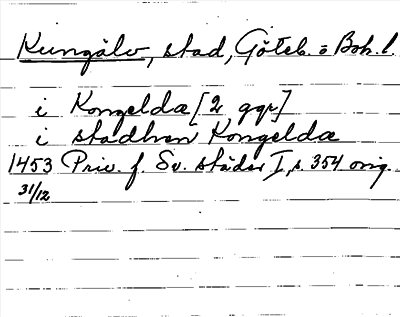 Kungälv, stad, Göteb. o Boh. l.
i Kongeldæ [2 ggr]
i stadhen Kongeldæ
1453 Priv. f. Sv. städer I, s. 354 orig.
31/12